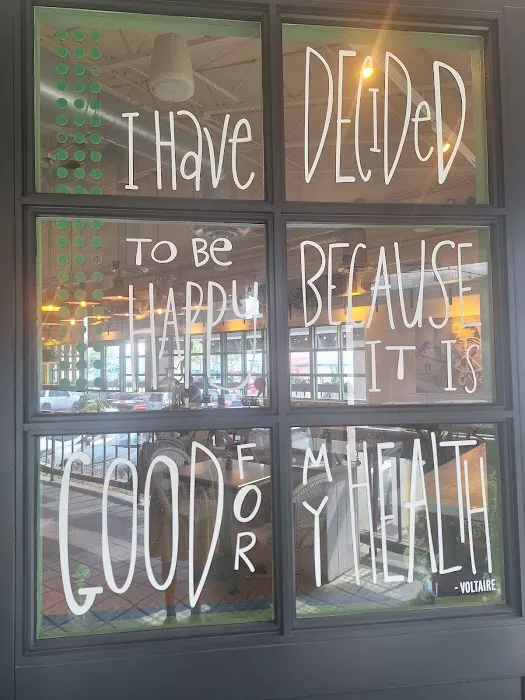 I HavE DECiDeD
TO BE HAPPY BECAUSE
IT IS
GOOD FOR MY HEALTH
- VOLTAIRE